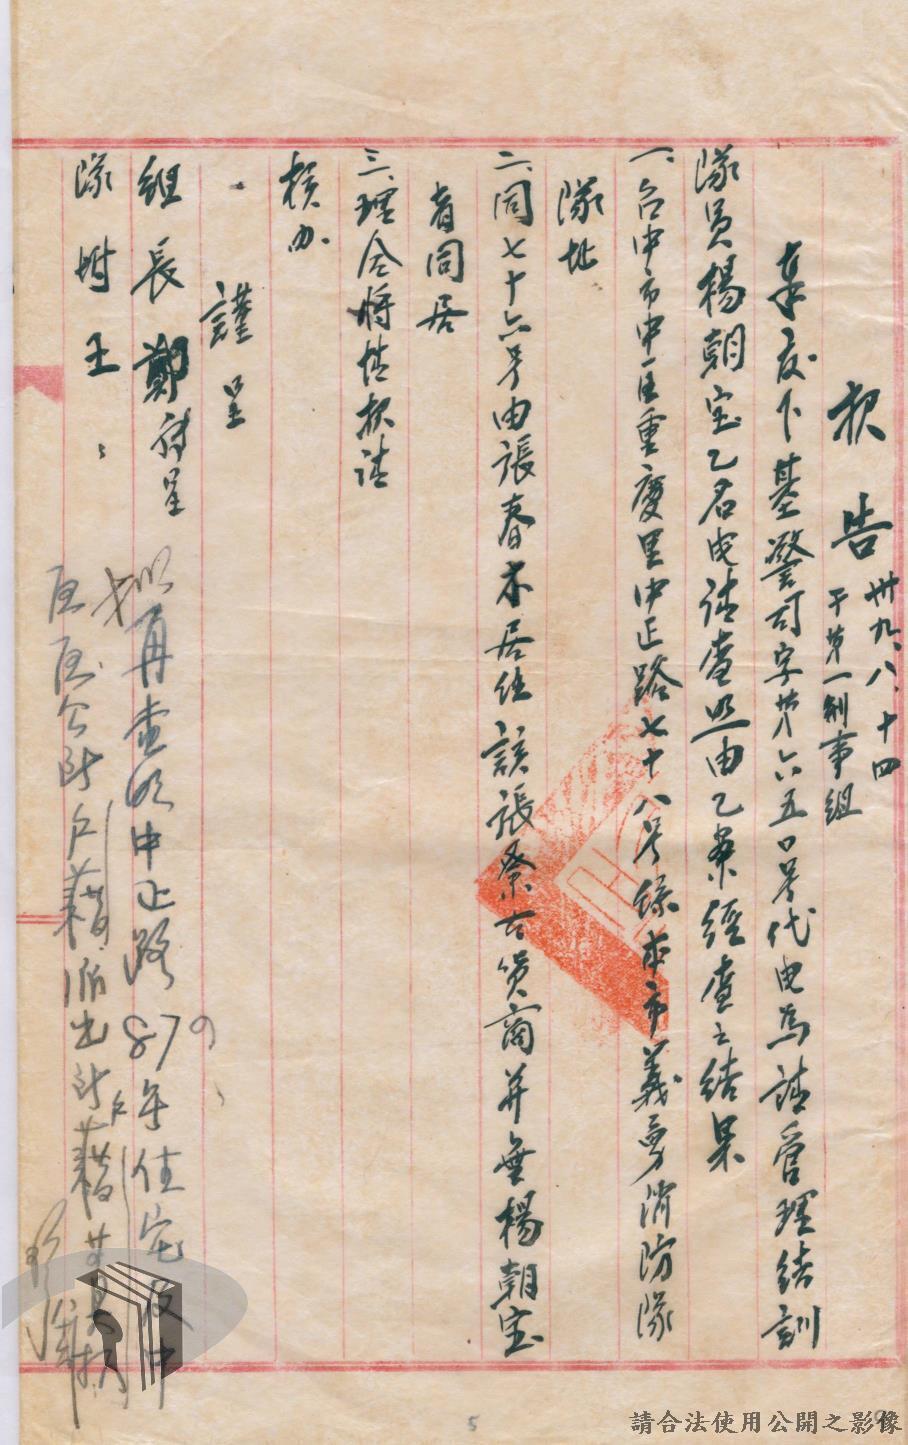 報告 卅九、八、十四
于第一刑事組
奉交下基警司字第六五0號代電為請管理結訓
隊員楊朝宝乙名电請查照由乙案經查之結果
一、台中市中區重慶里中正路七十八号係本市義勇消防隊
隊址
二、同七十六号由張春木居住該張系古貨商并無楊朝宝
者同居
三、理合將情報請
核办
謹呈
組長鄭 呈
隊附王
拟再查明中正路87年住宅及中
區區公所戶籍 出所戶籍
5
請合法使用公開之影像